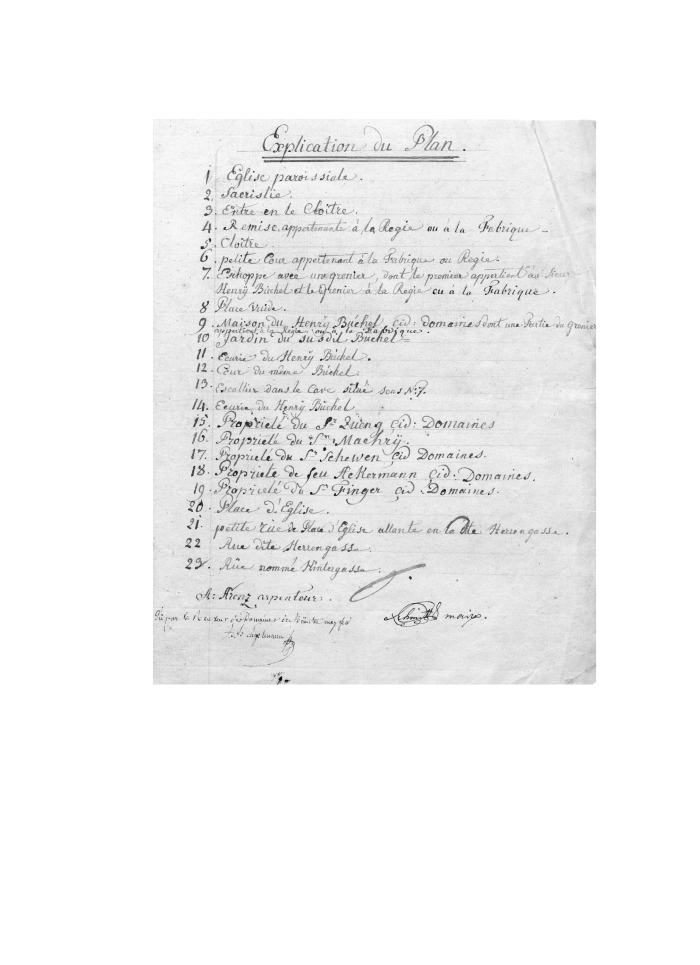 Explication du Plan.
1 Eglise paroissiale.
2. Sacristie.
3. Entre en le Cloitre.
4. Remise appartenante à la Regie ou à la Fabrique –
5. Cloitre.
6. petite Cour appertenant à la Fabrique ou Regie.
7. Echoppe avec un grenier, dont le premier appartient au Sieur
Henrÿ Büchel et le Grenier à la Regie ou à la Fabrique.
8 Place Vuide.
9. Maison du Henrÿ Büchel çid: domaines dont une Partie du Grenier
appartient à la Regie ou à la Fabrique.
10 Jardin du susdit Büchel =
11. Ecurie du Henrÿ Büchel.
12. Cour du même Büchel.
13. Escallier dans le Cave situé sous N.º 7.
14. Ecurie du Henrÿ Büchel
15. Proprieté du Sr. çid: Domaines
16. Proprieté du Sr. Maehrÿ.
17. Proprieté du Sr. Schewen çid Domaines.
18. Proprieté de feu Ackermann çid: Domaines.
19. Proprieté du Sr. Finger çid: Domaines.
20. Place d'Eglise.
21. petite rue de Place d'Eglise allante en la dite Herrengasse.
22 Rue dite Herrengasse.
23. Rüe nommé Hintergasse.
A: Krenz carpenteur:
Vu par le des Domaines
Schmitt maire.